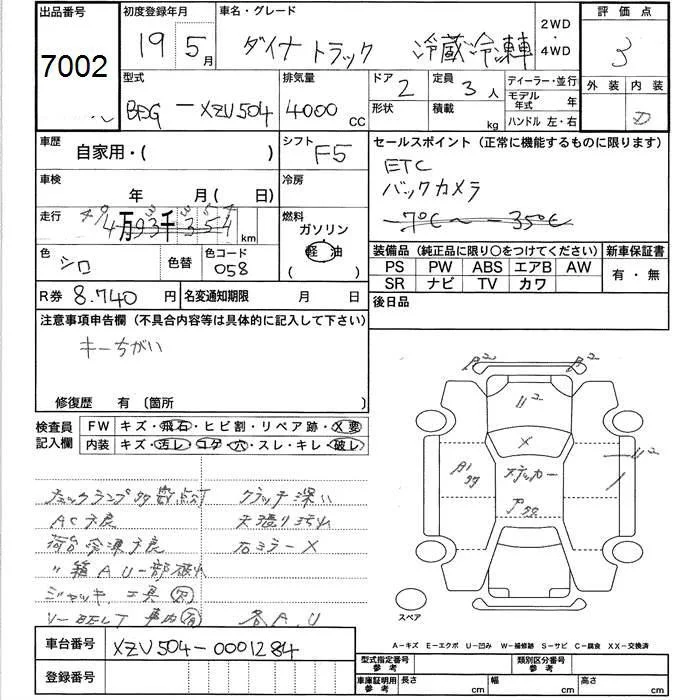 出品番号
7002
初度登録年月
19 5月
車名・グレード
ダイナトラック 冷蔵冷凍車
2WD
・
4WD
評価点
3
外装 内装
D
型式
BDG-XZU504
排気量
4000 CC
ドア
2
形状
定員
3人
積載
kg
ディーラー・並行
モデル年式 年
ハンドル 左・右
車歴
自家用・( )
シフト
F5
セールスポイント(正常に機能するものに限ります)
ETC
バックカメラ
-7℃~-35℃
車検
年 月( 日)
冷房
走行
万 千
km
燃料
ガソリン
軽油
( )
色
シロ
色替
色コード
058
装備品(純正品に限り○をつけてください)
新車保証書
PS PW ABS エアB AW
SR ナビ TV カワ
有・無
R券 8.740円
名変通知期限 月 日
後日品
注意事項申告欄(不具合内容等は具体的に記入して下さい)
キーちがい
修復歴 有 〔箇所 〕
検査員
記入欄
FW キズ・飛石・ヒビ割・リペア跡・X要
内装 キズ・汚レ・コゲ・穴・スレ・キレ・破レ
チェックランプ 数点灯 クラッチ深い
AC不良 天張り汚れ
荷台冷凍不良 右ミラーX
〃箱AU一部破れ
ジャッキ 工具
V-BELT 車内 各A.U
A2
U2
X
ステッカー
スペア
A-キズ E-エクボ U-凹み W-補修跡 S-サビ C-腐食 XX-交換済
車台番号
XZU504-0001284
登録番号
型式指定番号
参考
類別区分番号
参考
車庫証明用
参考
長さ cm
幅 cm
高さ cm